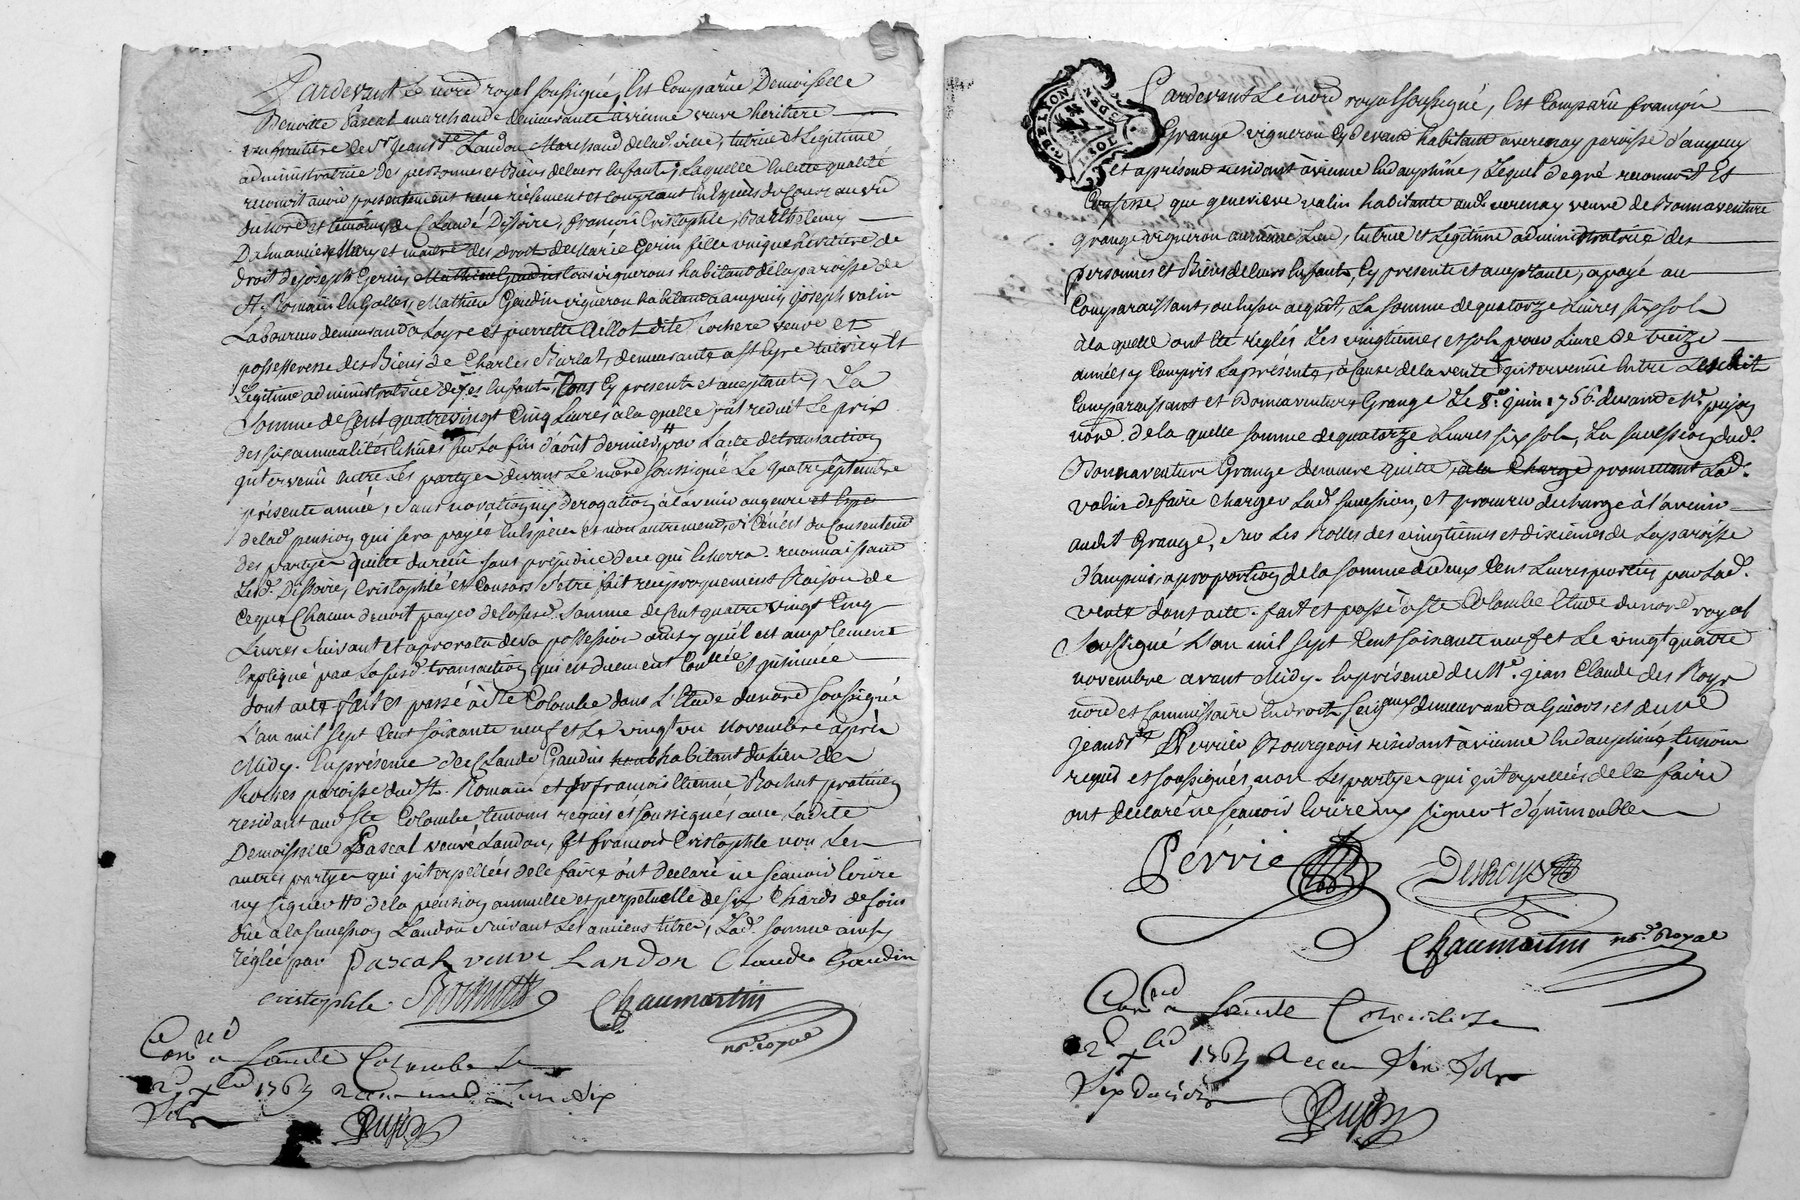 Pardevant le nore royal soussigné, Est Comparüe Demoiselle
Benoitte Pascal marchande demeurante à vienne veuve heritiere
usufruitiere de Sr jean Bte Landon Marchand de lad. ville, tutrice et Legitime
administratrice des personnes et Biens de leurs Enfants, Laquelle En cette qualité
reconnoit avoir presentement receu réelement et comptant En Espèces du Cours au vû
du nore et témoins de Claude Dissoire, françois Cristophle, Barthelemy
Dalmanier Mary et maitre des Droits de Marie Gerin fille unique héritiere de
droit de joseph Gerin, Mathieu Gaudin tous vignerons habitant de la paroisse de
St Romain En Galles, Mathieu Gaudin vigneron habitant a ampuis, joseph valin
Laboureur demeurand a Loyre et pierrette Aillot dite Rochere veuve et
possesseresse des Biens de Charles Burlat, demeurante a St Cyre tutrice Et
Légitime administratrice de ses Enfants Tous Cy presents et acceptants, La
Somme de Cent quatre vingt Cinq Livres à la quelle a été reduit Le prix
des six annualités Echües sur La fin d'août dernier, tt par L'acte de transaction
intervenü entre Les partyes devant Le nore soussigné Le quatre Septembre
présente année, sans novation ny derogation à l'avenir au genre et Espèce
de lad. pension qui sera payée En Espèces et non autrement, si Ce n'est du Consentement
des partyes quitte du reçu sans préjudice de ce qui Echerra. reconnaissant
Lesd. Dissoire, Cristophle et Consors S'etre fait reciproquement Raison de
Ce que Chacun devoit payer de la susd. Somme de Cent quatre vingt Cinq
Livres suivant et a prorata de sa possession ainsy qu'il est amplement
Expliqué par La susd. transaction qui est duement Conllée Et insinuée
dont acte fait et passé à Ste Colombe dans L'Etude du nore soussigné
L'an mil sept Cent soixante neuf et Le vingt un novembre après
Midy. En présence de Claude Gaudin habitant du Lieu de
Roches paroisse dud. St Romain et Sr françois Etienne Rochut praticien
residant aud. Ste Colombe, temoins requis et soussignés avec Ladite
Demoiselle Pascal veuve Landon, Et francois Cristophle non Les
autres partyes qui interpellées de le faire ont declaré ne sçauoir Ecrire
ny signer tt de la pension annuelle et perpetuelle de six Chards de foin
düe a la succession Landon suivant Les anciens titres, Lad. somme ainsy
réglée par Pascal veuve Landon Claude Gaudin
cristophle. Rochutt Chaumartin
nore royal
Conlé a Sainte Colombe Le
2d Xbre 1769
Pujon
DE LYON
GEN
Pardevant Le nore royal soussigné, Est Comparü françois
Grange vigneron Cy devant habitant a verenay paroisse d'ampuis
et a présent residant à vienne En dauphiné, Lequel de gré reconnoit Et
Confesse que genevieve valin habitante aud. verenay veuve de Bonnaventure
grange vigneron au même Lieu, tutrice et Legitime administratrice des
personnes et Biens de leurs Enfants, Cy presente et acceptante, a payé au
Comparaissant, ou luy en acquit, La somme de quatorze Livres six sols
à la quelle ont été réglés Les vingtiemes et sols pour Livre de treize
années y Compris La présente, à Cause de la vente intervenüe Entre Ledit
Comparaissant et Bonnaventure Grange Le 8e juin 1756 devand Me pujon
nore. de la quelle somme de quatorze Livres six sols, La succession dud.
Bonnaventure Grange demeure quitte, à la Charge promettant Lad.
valin de faire Charger Lad. succession, et procurer decharge à l'avenir
audit Grange, sur Les Rolles des vingtiemes et dixiemes de La paroisse
d'ampuis, a proportion de la somme de deux Cent Livres portée par Lad.
vente dont acte. fait et passé à Ste Colombe Etude du nore royal
Soussigné L'an mil sept Cent soixante neuf et Le vingt quatre
novembre avant Midy. En présence de Me. jean Claude des Roys
nore et Commissaire En droits seigaux demeurand a Givors, et de Sr
jean Bte Perrier Bourgeois résidant à vienne En dauphiné témoins
requis et soussignés, non Les partyes qui interpellées de le faire
ont déclaré ne sçauoir Ecrire ny signer + d'immeubles
Perrie Desroys
Chaumartin nore royal
Conlé a Sainte Colombe Le
2d Xbre 1769 Recu Six Sols
Six Deniers
Pujon